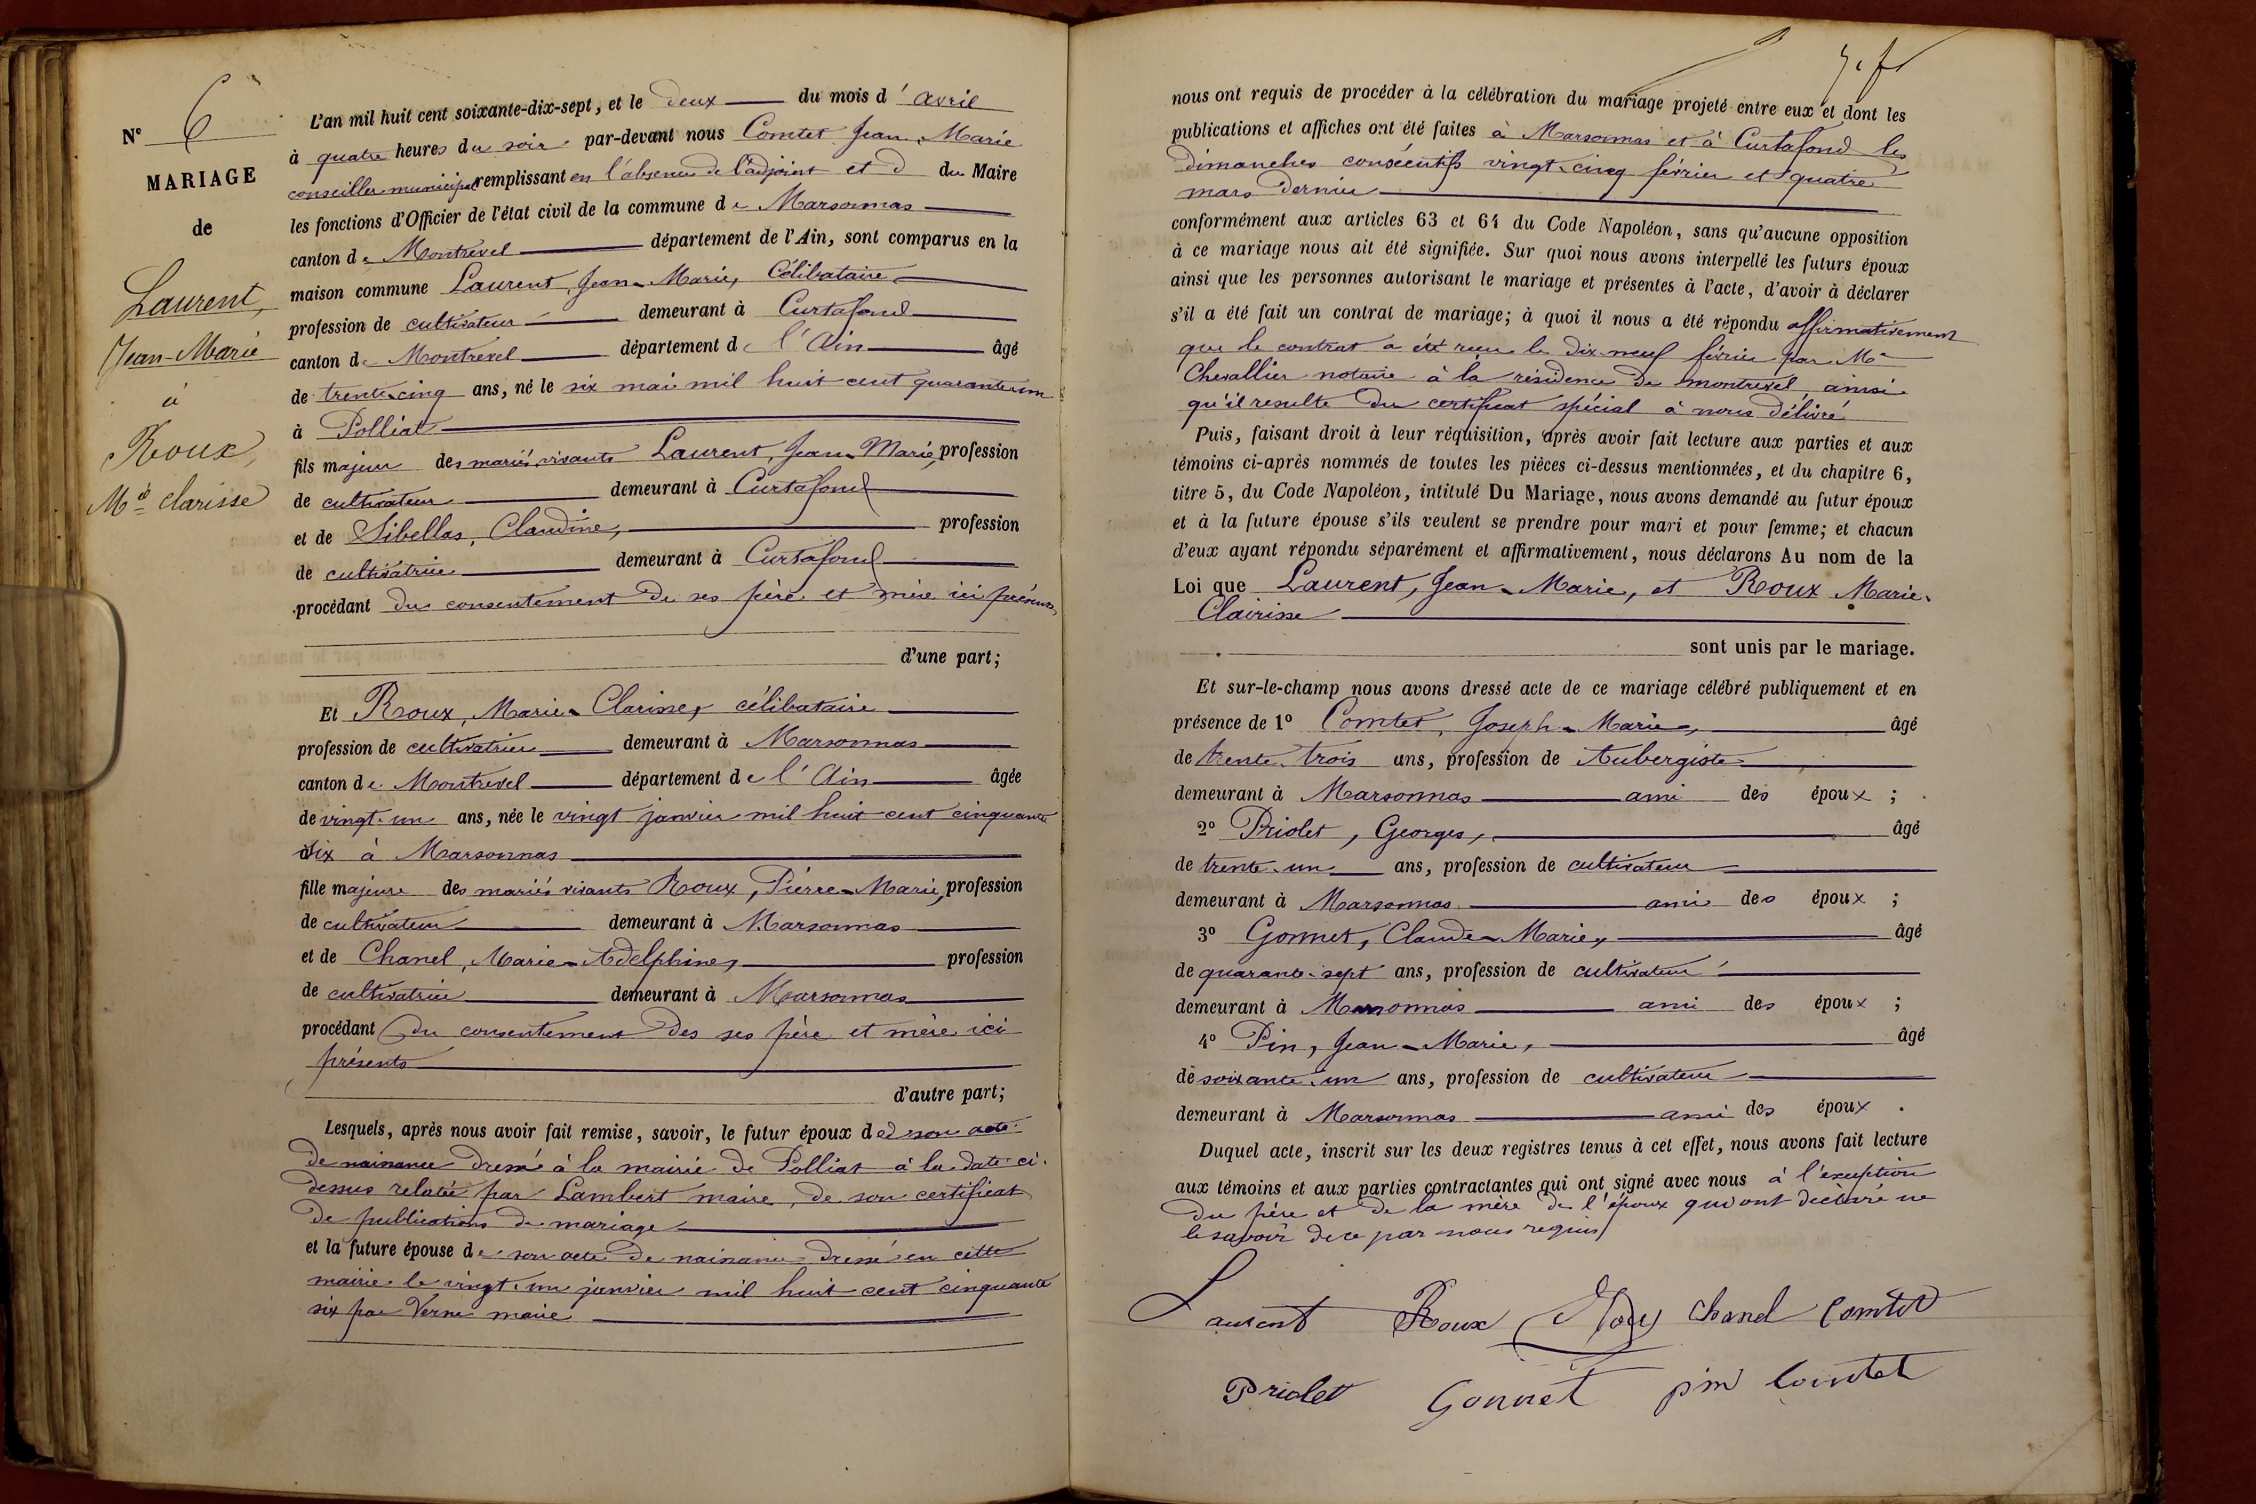 N° 6
MARIAGE
de
Laurent,
Jean-Marie
à
Roux,
Mie Clarisse
L'an mil huit cent soixante-dix-sept, et le deux du mois d'avril
à quatre heures du soir par-devant nous Comtet Jean-Marie
conseiller municipal remplissant en l'absence de l'adjoint et d du Maire
les fonctions d'Officier de l'état civil de la commune de Marsonnas
canton de Montrevel département de l'Ain, sont comparus en la
maison commune Laurent, Jean-Marie, Célibataire
profession de cultivateur demeurant à Curtafond
canton de Montrevel département de l'Ain âgé
de trente-cinq ans, né le six mai mil huit cent quarante-un
à Polliat
fils majeur des mariés vivants Laurent, Jean-Marie, profession
de cultivateur demeurant à Curtafond
et de Sibellas, Claudine, profession
de cultivatrice demeurant à Curtafond
procédant du consentement de ses père et mère ici présents
d'une part;
Et Roux, Marie-Clarisse, célibataire
profession de cultivatrice demeurant à Marsonnas
canton de Montrevel département de l'Ain âgée
de vingt-un ans, née le vingt janvier mil huit cent cinquante
six à Marsonnas
fille majeure des mariés vivants Roux, Pierre-Marie, profession
de cultivateur demeurant à Marsonnas
et de Chanel, Marie-Adelphine, profession
de cultivatrice demeurant à Marsonnas
procédant du consentement des ses père et mère ici
présents
d'autre part;
Lesquels, après nous avoir fait remise, savoir, le futur époux de son acte
de naissance dressé à la mairie de Polliat à la date ci-
dessus relatée par Lambert maire, de son certificat
de publications de mariage
et la future épouse de son acte de naissance dressé en cette
mairie le vingt-un janvier mil huit cent cinquante
six par Verne maire
nous ont requis de procéder à la célébration du mariage projeté entre eux et dont les
publications et affiches ont été faites à Marsonnas et à Curtafond les
dimanches consécutifs vingt-cinq février et quatre
mars dernier
conformément aux articles 63 et 64 du Code Napoléon, sans qu'aucune opposition
à ce mariage nous ait été signifiée. Sur quoi nous avons interpellé les futurs époux
ainsi que les personnes autorisant le mariage et présentes à l'acte, d'avoir à déclarer
s'il a été fait un contrat de mariage; à quoi il nous a été répondu affirmativement
que le contrat a été reçu le dix-neuf février par Me
Chevallier notaire à la résidence de Montrevel ainsi
qu'il resulte du certificat spécial à nous délivré
Puis, faisant droit à leur réquisition, après avoir fait lecture aux parties et aux
témoins ci-après nommés de toutes les pièces ci-dessus mentionnées, et du chapitre 6,
titre 5, du Code Napoléon, intitulé Du Mariage, nous avons demandé au futur époux
et à la future épouse s'ils veulent se prendre pour mari et pour femme; et chacun
d'eux ayant répondu séparément et affirmativement, nous déclarons Au nom de la
Loi que Laurent, Jean-Marie, et Roux Marie-
Clairisse
sont unis par le mariage.
Et sur-le-champ nous avons dressé acte de ce mariage célébré publiquement et en
présence de 1° Comtet, Joseph-Marie, âgé
de trente-trois ans, profession de Aubergiste
demeurant à Marsonnas ami des époux ;
2° Priolet, Georges, âgé
de trente-un ans, profession de cultivateur
demeurant à Marsonnas ami des époux ;
3° Gonnet, Claude-Marie, âgé
de quarante-sept ans, profession de cultivateur
demeurant à Marsonnas ami des époux ;
4° Pin, Jean-Marie, âgé
de soixante-un ans, profession de cultivateur
demeurant à Marsonnas ami des époux .
Duquel acte, inscrit sur les deux registres tenus à cet effet, nous avons fait lecture
aux témoins et aux parties contractantes qui ont signé avec nous à l'exception
du père et de la mère de l'époux qui ont déclaré ne
le savoir de ce par nous requis
Laurent Roux Roux Chanel Comtet
Priolet Gonnet pin Comtet